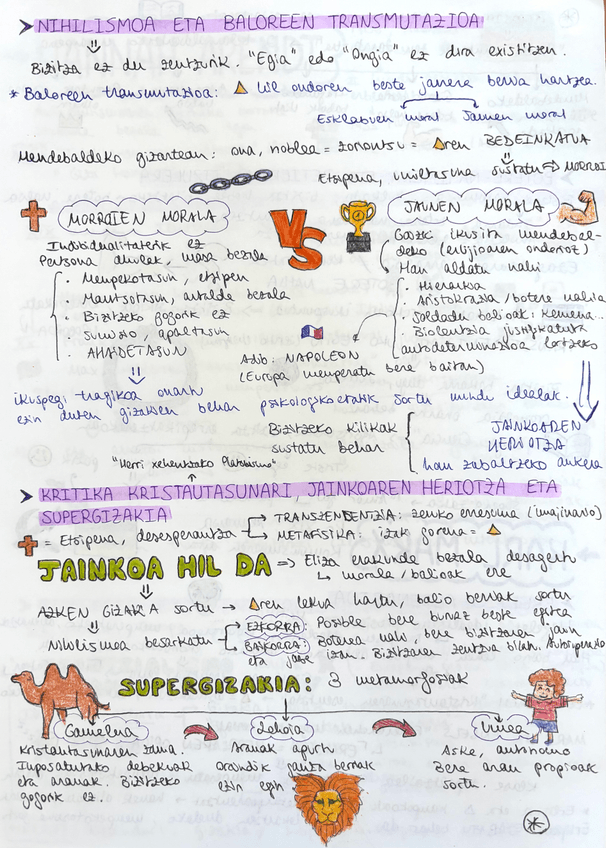 ➤ NIHILISMOA ETA BALOREEN TRANSMUTAZIOA
⇓
Bizitza ez du zentzurik. "Egia" edo "Ongia" ez dira existitzen.
* Baloreen transmutazioa: △ hil ondoren beste janera berria hartzea.
Esklabuen moral Jaunen moral
Mendebaldeko gizartean: ona, noblea = zoriontsu = △ren BEDEINKATUA
Etsipena, umiltasuna sustatu ⇒ MORROI
MORROIEN MORALA
VS
JAUNEN MORALA
Indibidualitaterik ez
Pertsona ahulak, masa bezala
· Menpekotasun, etsipen
· Mantsotasun, artalde bezala
· Bizitzeko gogorik ez
sumisio, apaltasun
AHALDETASUN
Gaizki ikusita mendebal-
deko (erlijioaren ondorioz)
Hau aldatu nahi
· Hierarkia
· Aristokrazia / botere nahia
· soldadu balioak: kemena...
· Biolentzia justifikatuta
autodeterminazioa lortzeko
Adib: NAPOLEON
(Europa menperatu bere baitan)
⇓
ikuspegi tragikoa onartu
ezin duten gizakien behar psikologikoetatik sortu mundu idealak.
Bizitzeko kilikak
sustatu behar
JAINKOAREN
HERIOTZA
hau zabaltzeko aukera
"Herri xehentzako Platonismo"
➤ KRITIKA KRISTAUTASUNARI, JAINKOAREN HERIOTZA ETA
SUPERGIZAKIA
= Etsipena, desesperantza
TRANSZENDENTZIA: zeruko erresuma (imajinario)
METAFISIKA: izaki goren = △
JAINKOA HIL DA ⇒ Eliza erakunde bezala desagertu
↳ morala / balioak ere
⇓
AZKEN GIZAKIA sortu → △ren lekua hartu, balio berriak sortu
⇓
Nihilismoa besarkatu
EZKORRA: Posible bere buruaz beste egitea
BAIKORRA: Boterea nahi, bere bizitzaren jaun
eta jabe izan. Bizitzaren zentzua bilatu.
SUPERGIZAKIA: 3 metamorfosiak
Gamelua
Lehoia
Umea
Kristautasunaren zama.
Inposatutako debekuak
eta arauak. Bizitzeko
gogorik ez.
Arauak apurtu
oraindik jauta berriak
ezin egin
Aske, autonomo
Bere arau propioak
sortu.
*